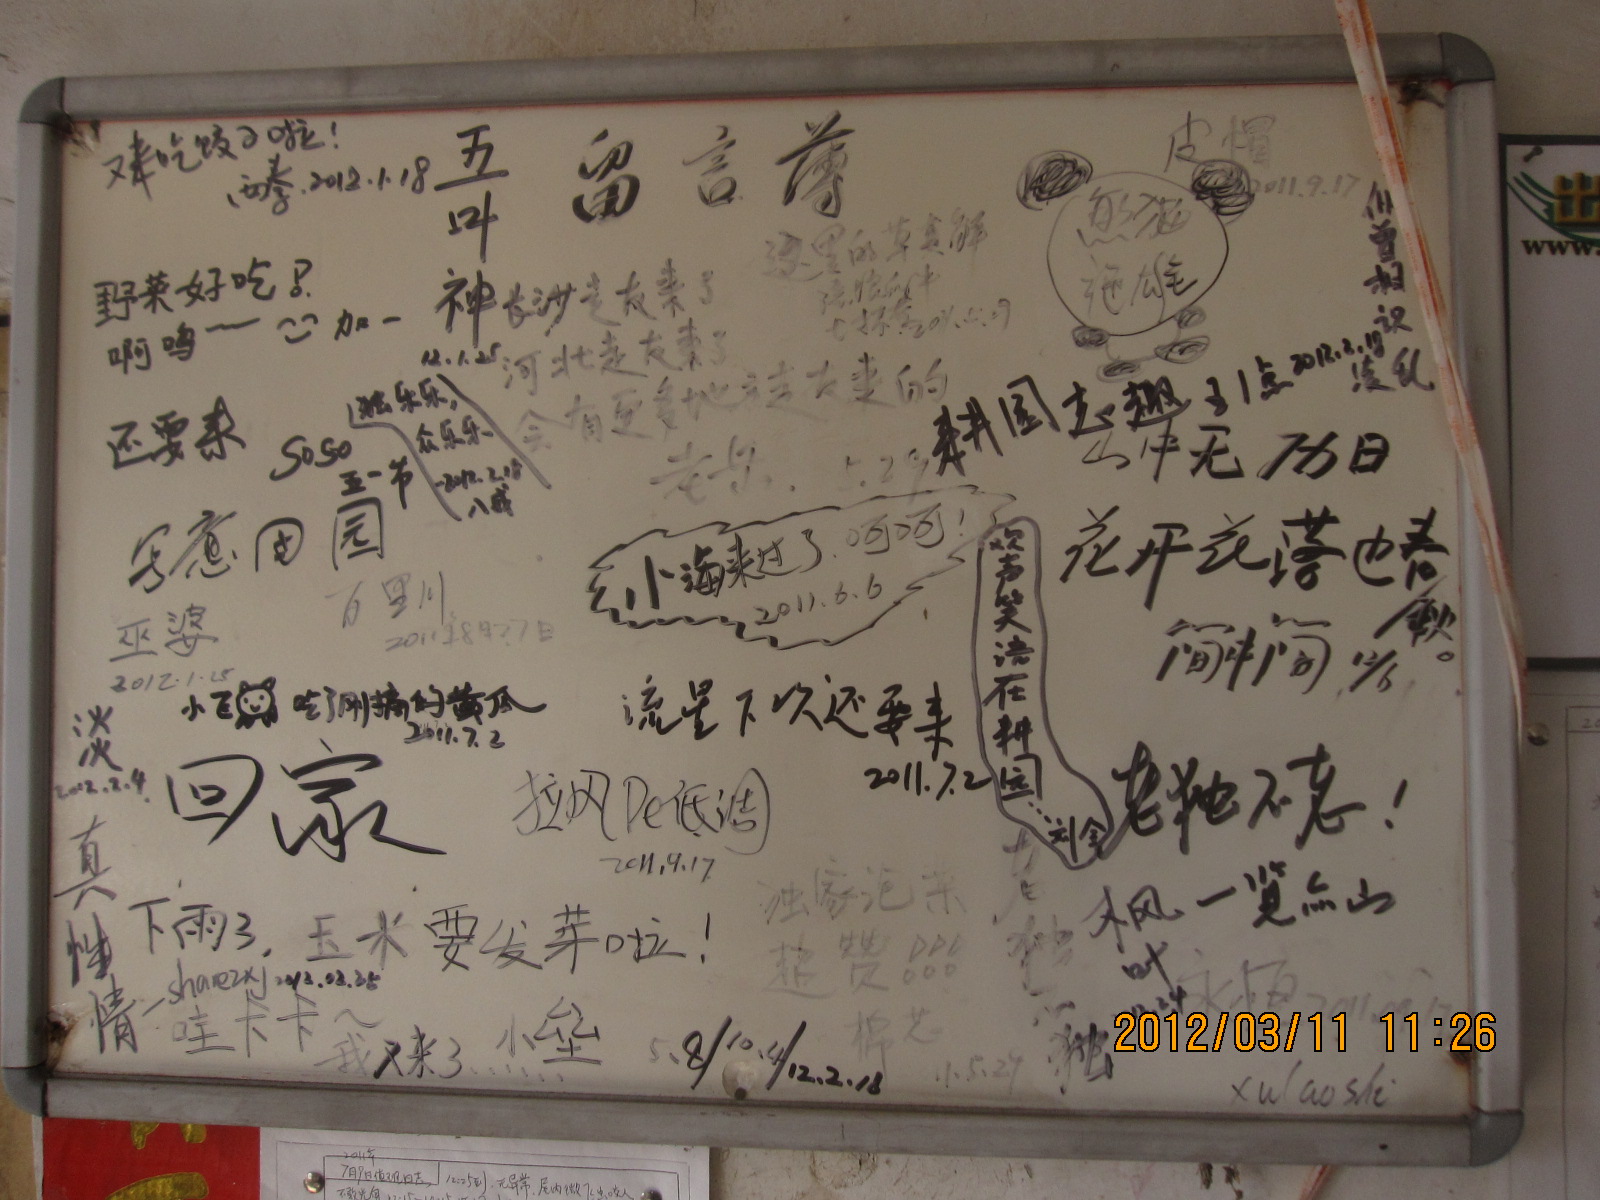 又来吃饺子啦!
2012.1.18
五
叶
神
12.1.25
留言薄
皮帽
2011.9.17
熊猫
野菜好吃!
啊呜~ 加一
长沙走友来了
河北走友来了
会有更多地方走友来的
老乐. 5.29
这里的草真鲜
似曾相识
2012.2.18
凌乱
还要来
soso
五一节
独乐乐,
众乐乐
2012.2.18
八戒
耕园走趣
山中无历日
花开花落也春秋。
简中简
写意田园
百里川
2011年8月27日
小海来过了.呵呵!
2011.6.6
欢声笑语在耕园...刘金
巫婆
2012.1.25
小 吃了刚摘的黄瓜
2011.7.2
流星下次还要来
2011.7.2
淡
2012.2.4
回家
拉风De低调
2011.9.17
老独不老!
真性情
下雨了,玉米要发芽啦!
2012.02.25
独家泡菜
超赞!!!
棉芯
11.5.29
枫叶
一览众山
永恒
哇卡卡~
我又来了......小垒
5.8/10.4/12.2.18
老独
独
xulaoshi
2012/03/11 11:26
www.
2011年